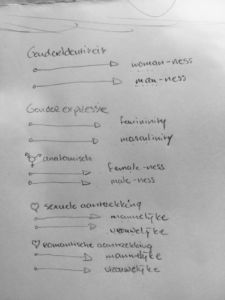 Genderidentiteit
woman-ness
man-ness
Gender expressie
femininity
masculinity
anatomisch
female-ness
male-ness
sexuele aantrekking
mannelijke
vrouwelijke
romantische aantrekking
mannelijke
vrouwelijke